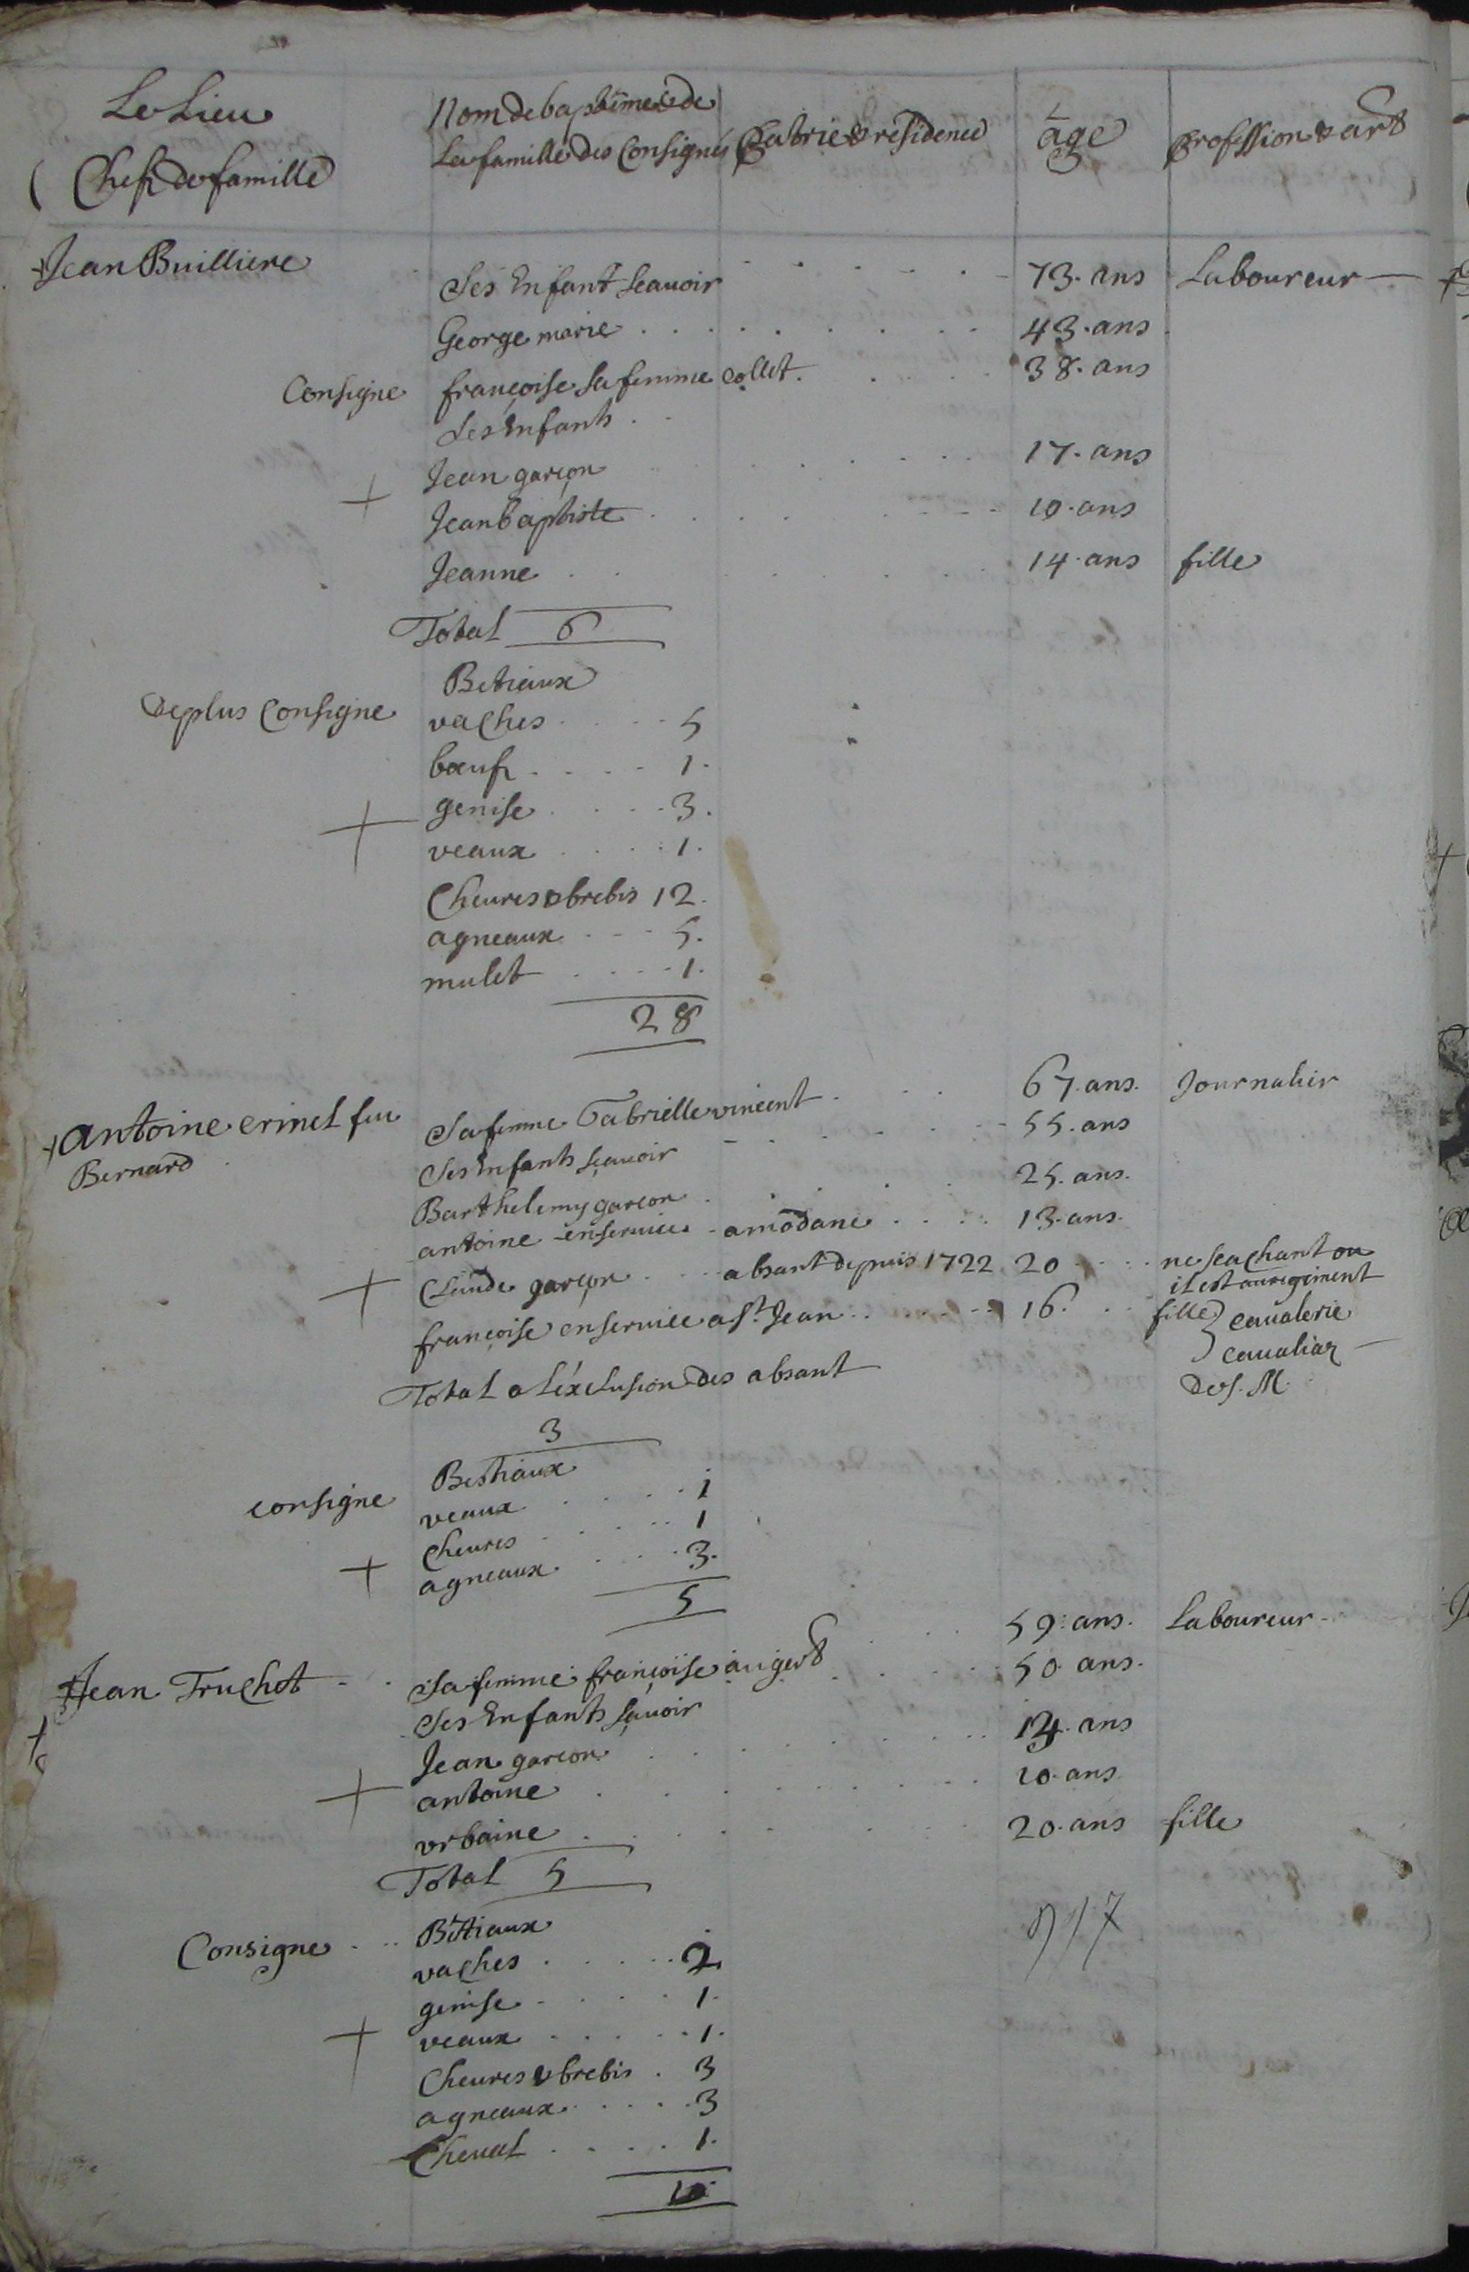 Le Lieu
Chefs de famille
Nom de baptême & de
La famille des Consignés
Patrie & residence
âge
profession & art
Jean Builliere
Ses Enfant Scauoir
73. ans Laboureur
George marie 43. ans
Consigne françoise sa femme collet. 38. ans
Ses Enfants
Jean garçon 17. ans
Jean baptiste 10. ans
Jeanne 14. ans fille
Total 6
Betiaux
De plus Consigne vaches 5
bœufs 1.
genise 3.
veaux 1.
Cheures & brebis 12.
agneaux 5.
mulet 1.
28
67. ans. Journalier
Antoine erinel feu Sa femme Gabrielle vincent 55. ans
Bernard Ses Enfants sçauoir
Barthelemy garcon 25. ans.
antoine en seruice a modane 13. ans.
Claude garçon absant depuis 1722 20 ne scachant ou
il est au regiment
françoise en seruice a St. Jean 16. fille cavalerie
cavaliar
de S. M.
Total a l'éxclusion des absant
3
Bestiaux
consigne veaux 1
Cheures 1
agneaux 3.
5
59. ans. Laboureur
Jean Truchet Sa femme françoise augert 50. ans.
Ses Enfants sçauoir
Jean garcon 14. ans
antoine 10. ans
vrbaine 20. ans fille
Total 5
Betiaux
Consigne vaches 2
genise 1.
veaux 1.
Cheures & brebis 3
agneaux 3
Cheual 1.
10